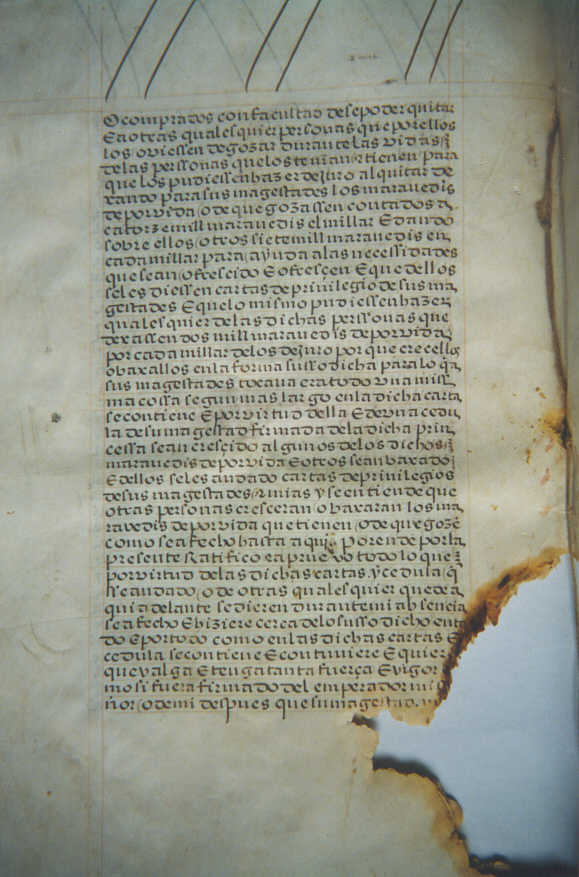 O comprados con facultad de se poder quitar
E a otras quales quier personas que por ellos
los oviessen de gozar durante las vidas
de las perssonas que los tenian / e tienen para
que los pudiessen hazer de juro al quitar de
xando para sus magestades los maravedis
de por vida / o de que gozassen contados a
catorze mill maravedis el millar E dando
sobre ellos / otros siete mill maravedis en
cada millar para / ayuda a las necessidades
que se an / ofrescido E ofresçen E que dellos
se les diessen cartas de privilegio de sus ma
gestades E que lo mismo pudiessen hazer
quales quier de las dichas perssonas que
dexassen dos mill maravedis de por vida
por cada millar de los de juro por que crecellos
o baxallos en la forma susso dicha para lo q̃ a
sus magestades tocava era todo una mis
ma cossa segun mas largo en la dicha carta
se contiene E por virtud della E de una cedu
la de su magestad firmada de la dicha prin
cessa se an cresçido algunos de los dichos
maravedis de por vida E otros se an baxado
E dellos se les an dado cartas de privilegios
de sus magestades / e mias y se entiende que
otras personas cresceran / o baxaran los ma
ravedis de por vida que tienen / o de que gozē
como se a fecho hasta aqui por ende por la
presente Ratifico e apruevo todo lo que
por virtud de las dichas cartas y cedula / q̃
se an dado / o de otras quales quier que de a
qui adelante se dieren durante mi absencia
se a fecho E hiziere cerca de lo susso dicho en to
do E por todo como en las dichas cartas E
cedula se contiene E contuviere E quier
que valga E tenga tanta fuerça E vigor
mo si fuera firmado del emperador mi
ñor / o de mi despues que su magestad